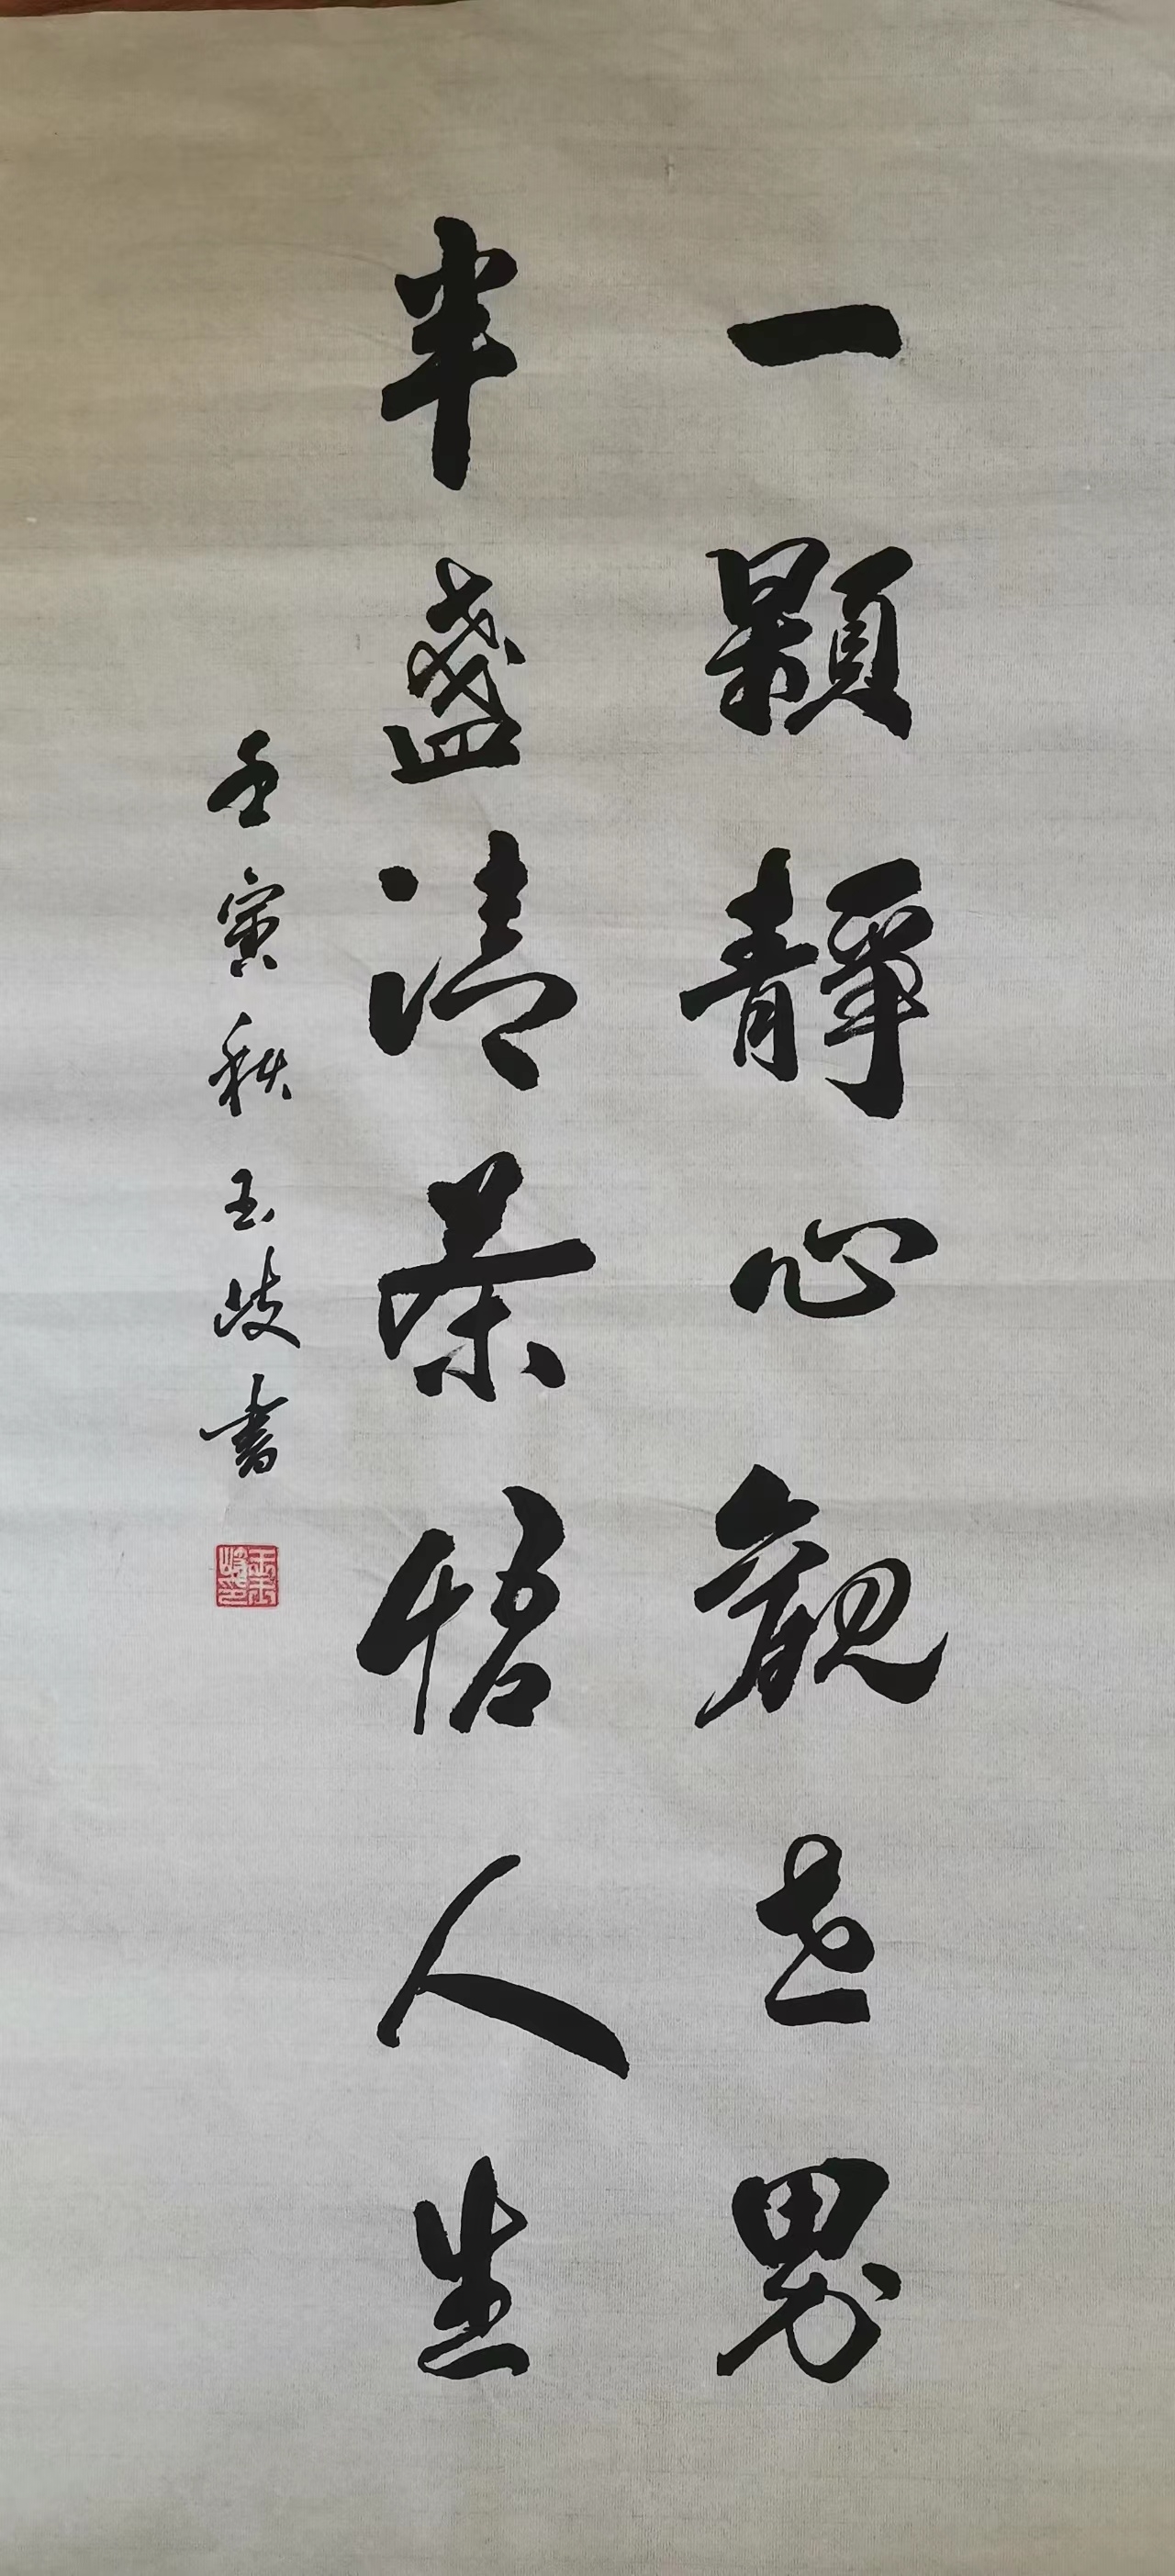 一顆靜心觀世界
半盞清茶悟人生
壬寅秋玉岐書